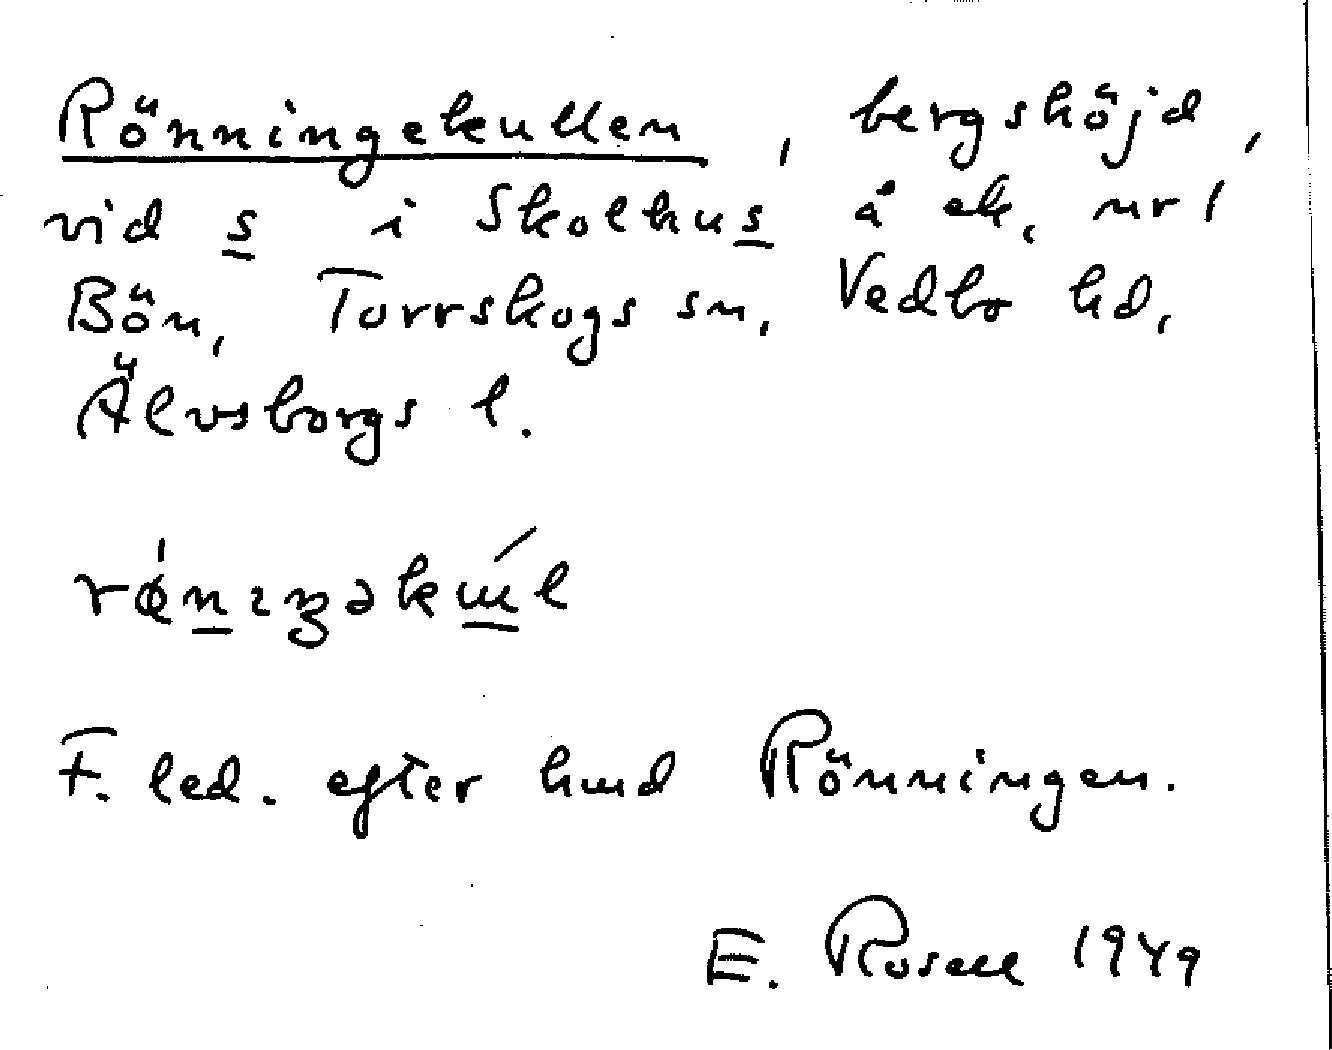 Rönningekullen, bergshöjd,
vid s i Skolhus å ek, nr 1
Bön, Torrskogs sn, Vedbo hd,
Älvsborgs l.
F. led. efter hmd Rönningen.
E. Rosell 1949